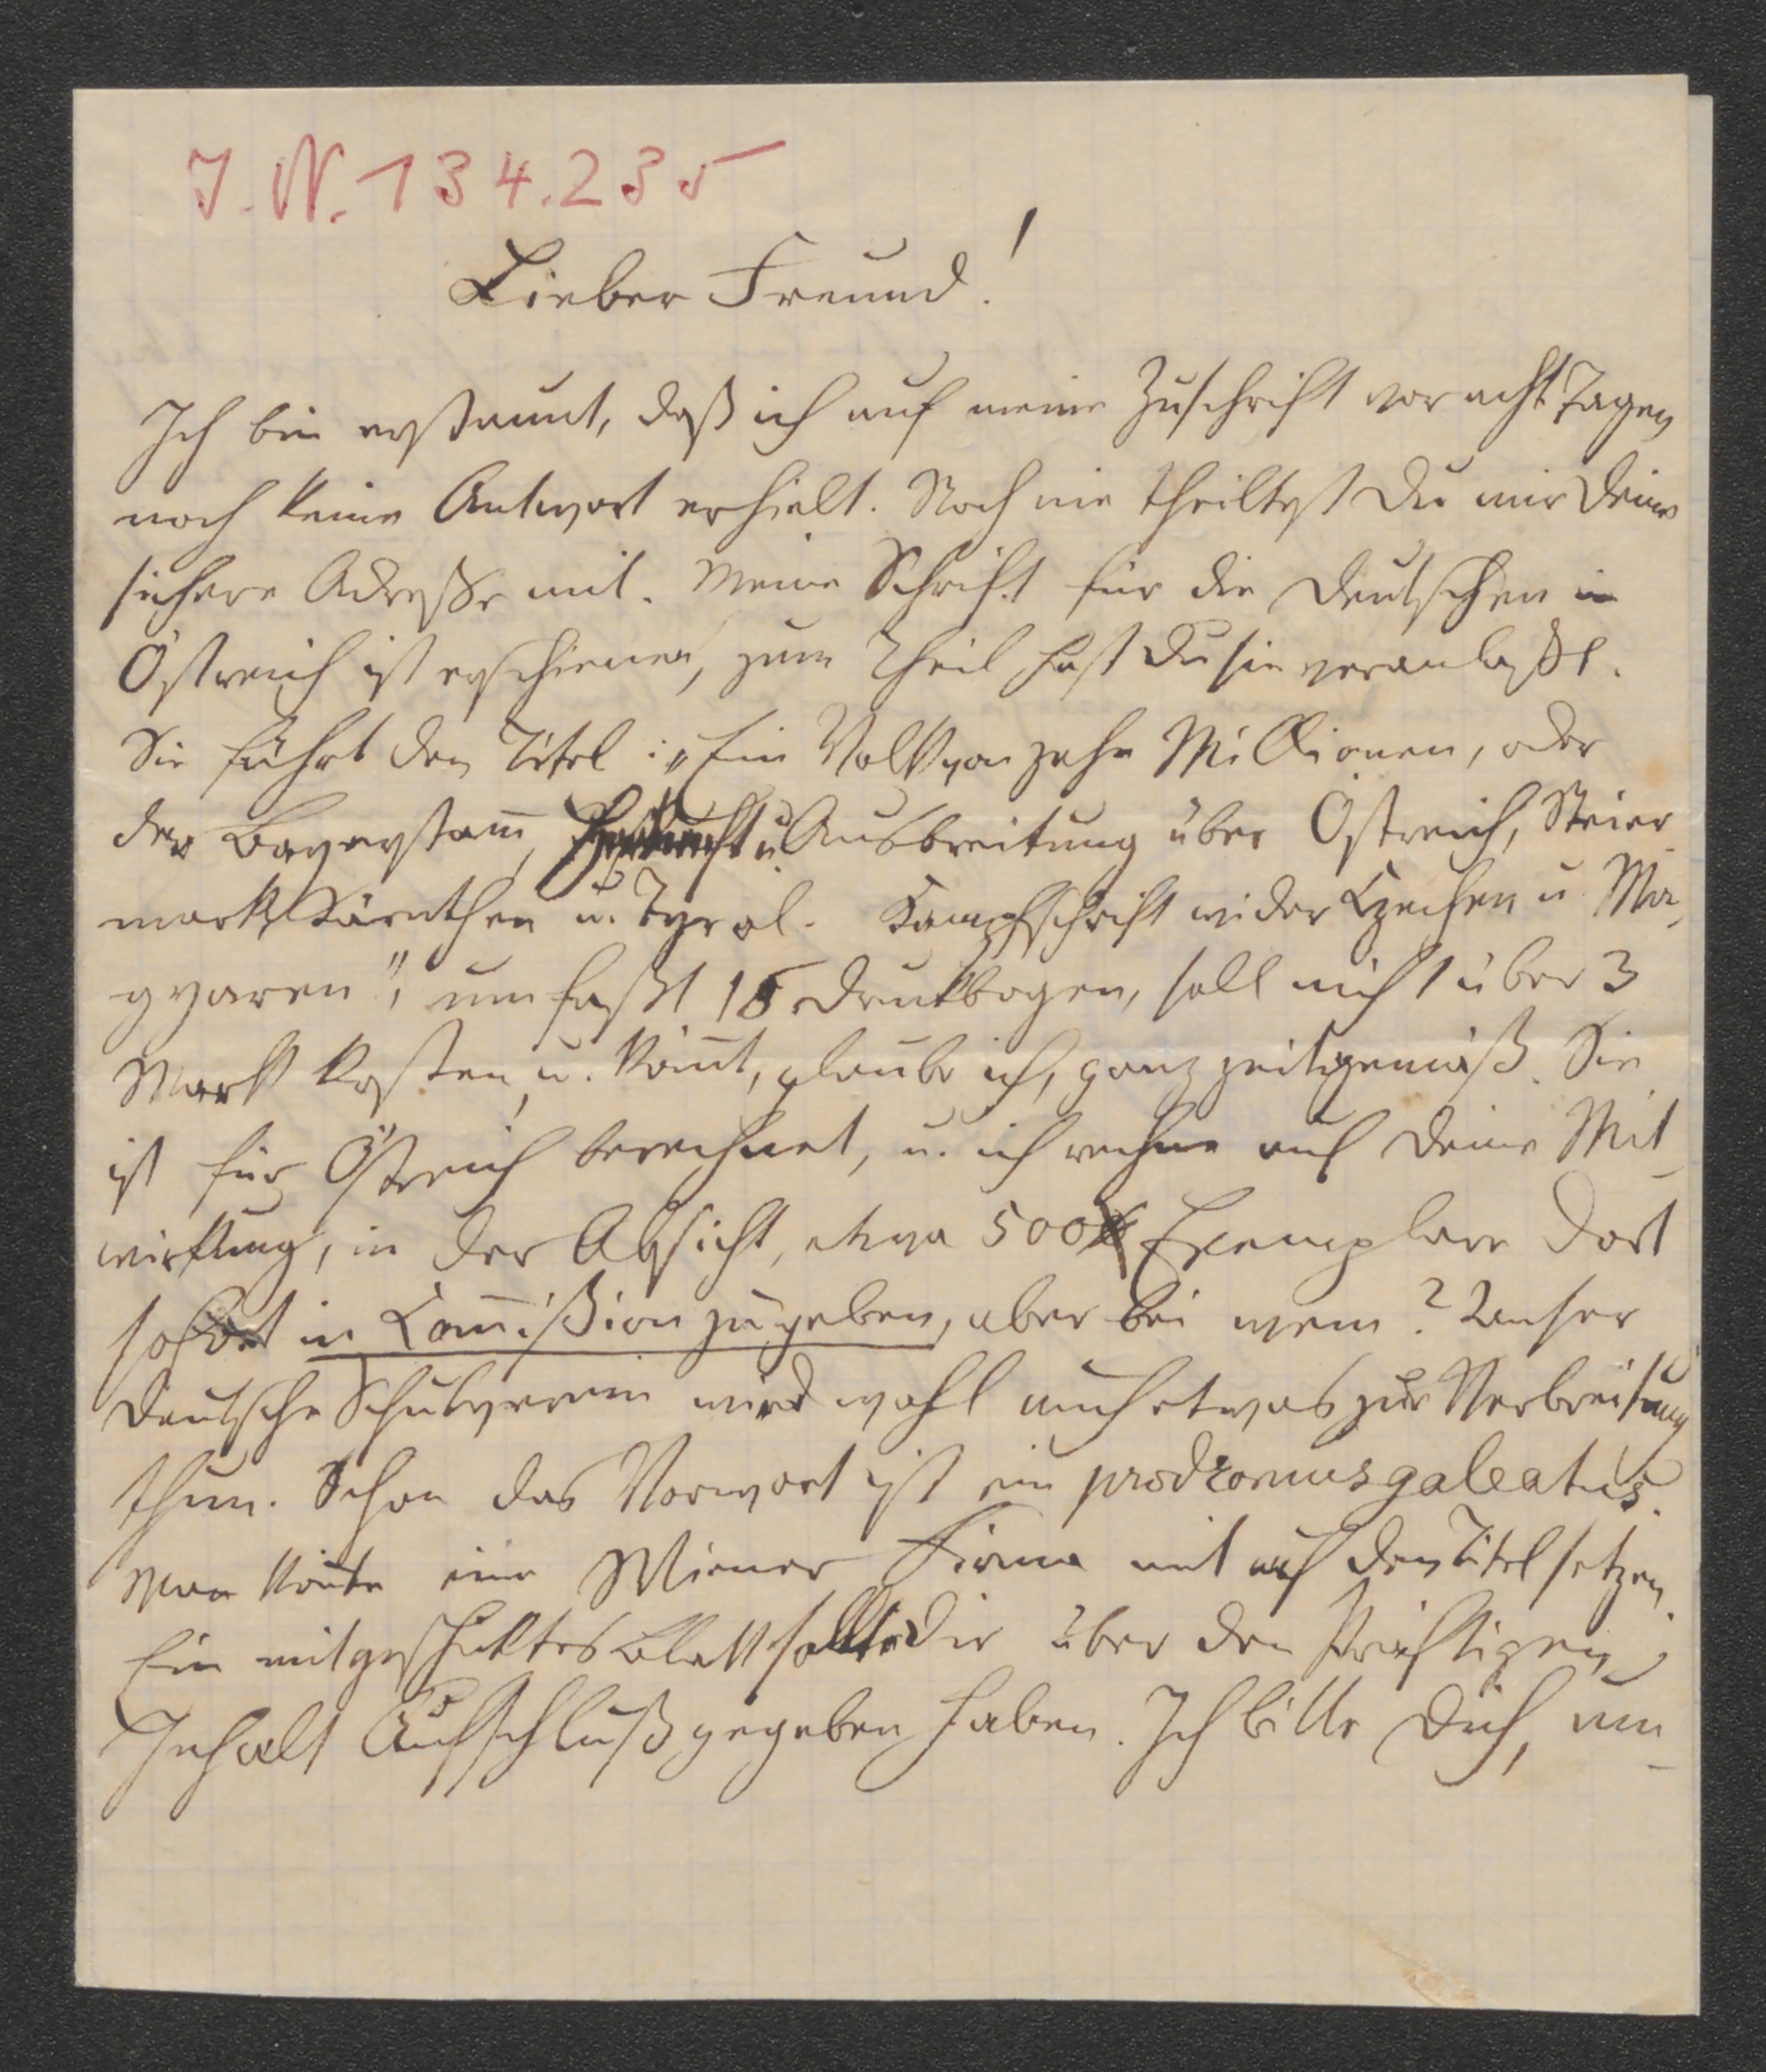 I. N. 134.235
Lieber Freund!
Ich bin erstaunt, daß ich auf meine Zuschrift vor acht Tagen
noch keine Antwort erhielt. Noch nie theiltest Du mir Deine
sichere Adreße mit. Meine Schrift für die Deutschen in
Östreich ist erschienen, zum Theil hast Du sie veranlaßt.
Sie führt den Titel: „Ein Volk von zehn Millionen, oder
der Bayerstam̅, u. Ausbreitung über Östreich, Steier
mark, Kärnthen u. Tyrol. Kampfschrift wider Czechen u Ma-
gyaren", umfaßt 15 Druckbogen, soll nicht über 3
Mark kosten, u. köm̅t, glaube ich, ganz zeitgemäß. Sie
ist für Östreich berechnet, u. ich rechne auf Deine Mit-
wirkung, in der Absicht, etwa 500 Exemplare dort
sofort in Com̅ißion zu geben, aber bei wem? Unser
deutsche Schulverein wird wohl auch etwas zur Verbreitung
thun. Schon das Vorwort ist ein prodromus galeatus.
Man kön̅te eine Wiener Firma mit auf den Titel setzen.
Ein mitgeschicktes Blatt sollte Dir über den kräftigen
Inhalt Aufschluß gegeben haben. Ich bitte Dich, um-